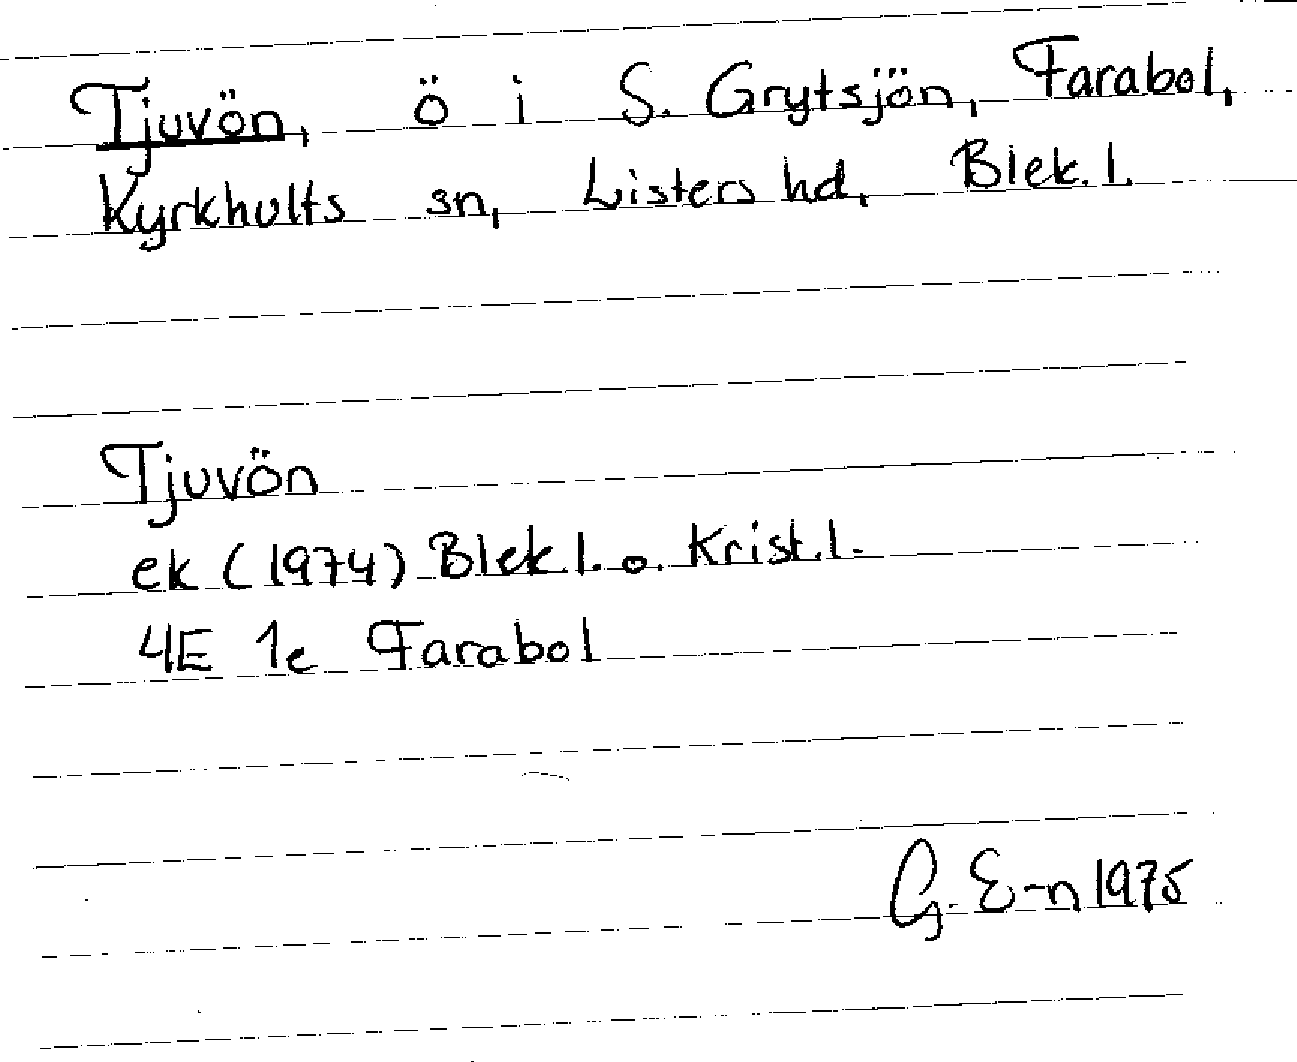 Tjuvön, ö i S. Grytsjön, Farabol,
Kyrkhults sn, Listers hd, Blek. l.
Tjuvön
ek (1974) Blek l. o. Krist. l.
4E 1e Farabol
G. E-n 1975